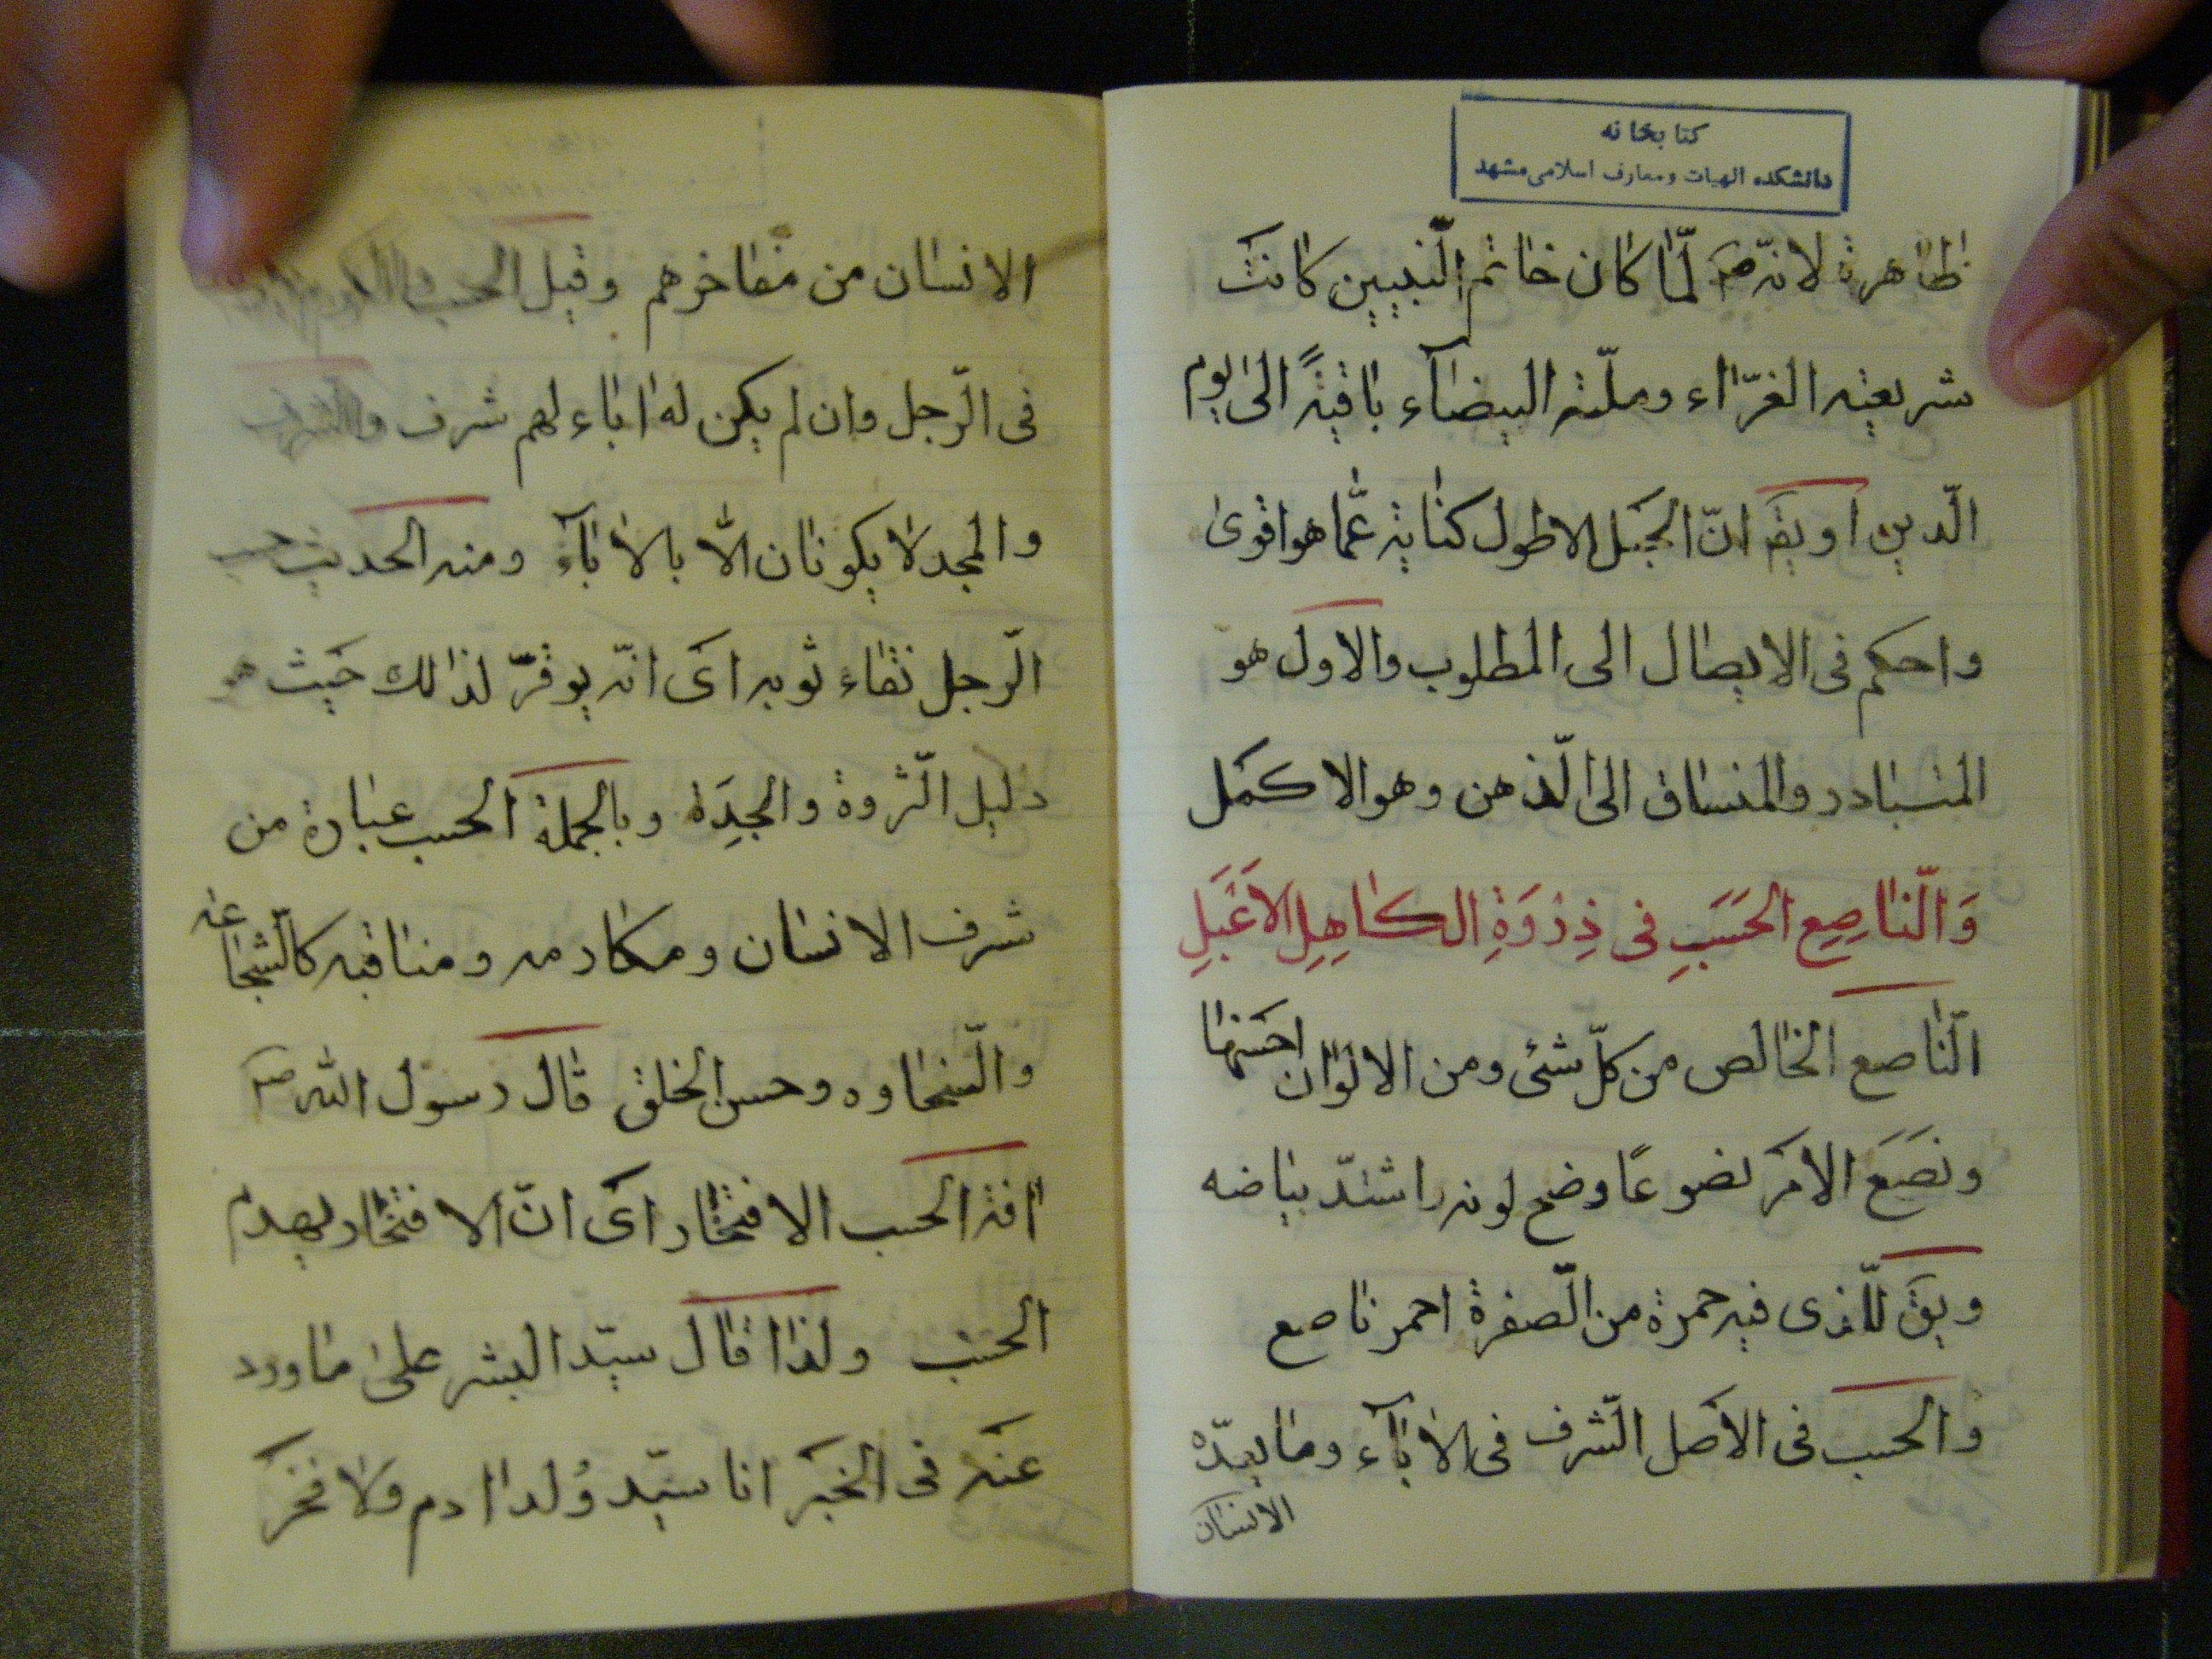 كتابخانه
دانشكده الهیات ومعارف اسلامی مشهد
ظاهرة لانّه ص لمّا كان خاتم النّبيين كانت
شريعته الغرّاء وملّته البيضآء باقيةً الى يوم
الدّين او يق انّ الحبل الاطول كناية عمّا هو اقوى
واحكم فى الايصال الى المطلوب والاول هو
المتبادر والمنساق الى الذّهن وهو الاكمل
وَالنّاصِعِ الحَسَبِ فى ذِرْوَةِ الكاهِلِ الاَعْبَلِ
النّاصع الخالص من كلّ شئ ومن الالوان احسنها
ونصَعَ الامر نصوعًا وضح لونه واشتدّ بياضه
ويق للّذى فيه حمرة من الصّفرة احمر ناصع
والحسب فى الاصل الشّرف فى الاباء وما يعدّه
الانسان
الانسان من مفاخرهم وقيل الحسب
فى الرّجل وان لم يكن له اباء لهم شرف والشرف
والمجد لا يكونان الّا بالاباء ومنه الحديث حسب
الرّجل نقاء ثوبه اى انّه يوقّر لذالك حيث هو
دليل الثّروة والجِدَة وبالجملة الحسب عبارة من
شرف الانسان ومكارمه ومناقبه كالشّجاعة
والسّخاوه وحسن الخلق قال رسول الله ص
افة الحسب الافتخار اى انّ الافتخار يهدم
الحسب ولذا قال سيّد البشر على ما ورد
عنه فى الخبر انا سيّد وُلد ادم ولا فخر